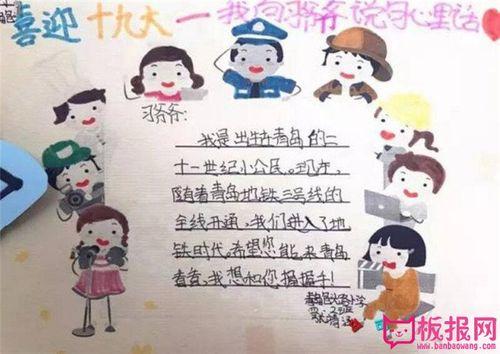 喜迎十九大一我向习爷爷说句心里话
习爷爷:
我是出生在青岛的二
十一世纪小公民。现在,
随着青岛地铁三号线的
全线开通,我们进入了地
铁时代。希望您能来青岛
看看,我想和您握握手!
板报网
www.banbaowang.com